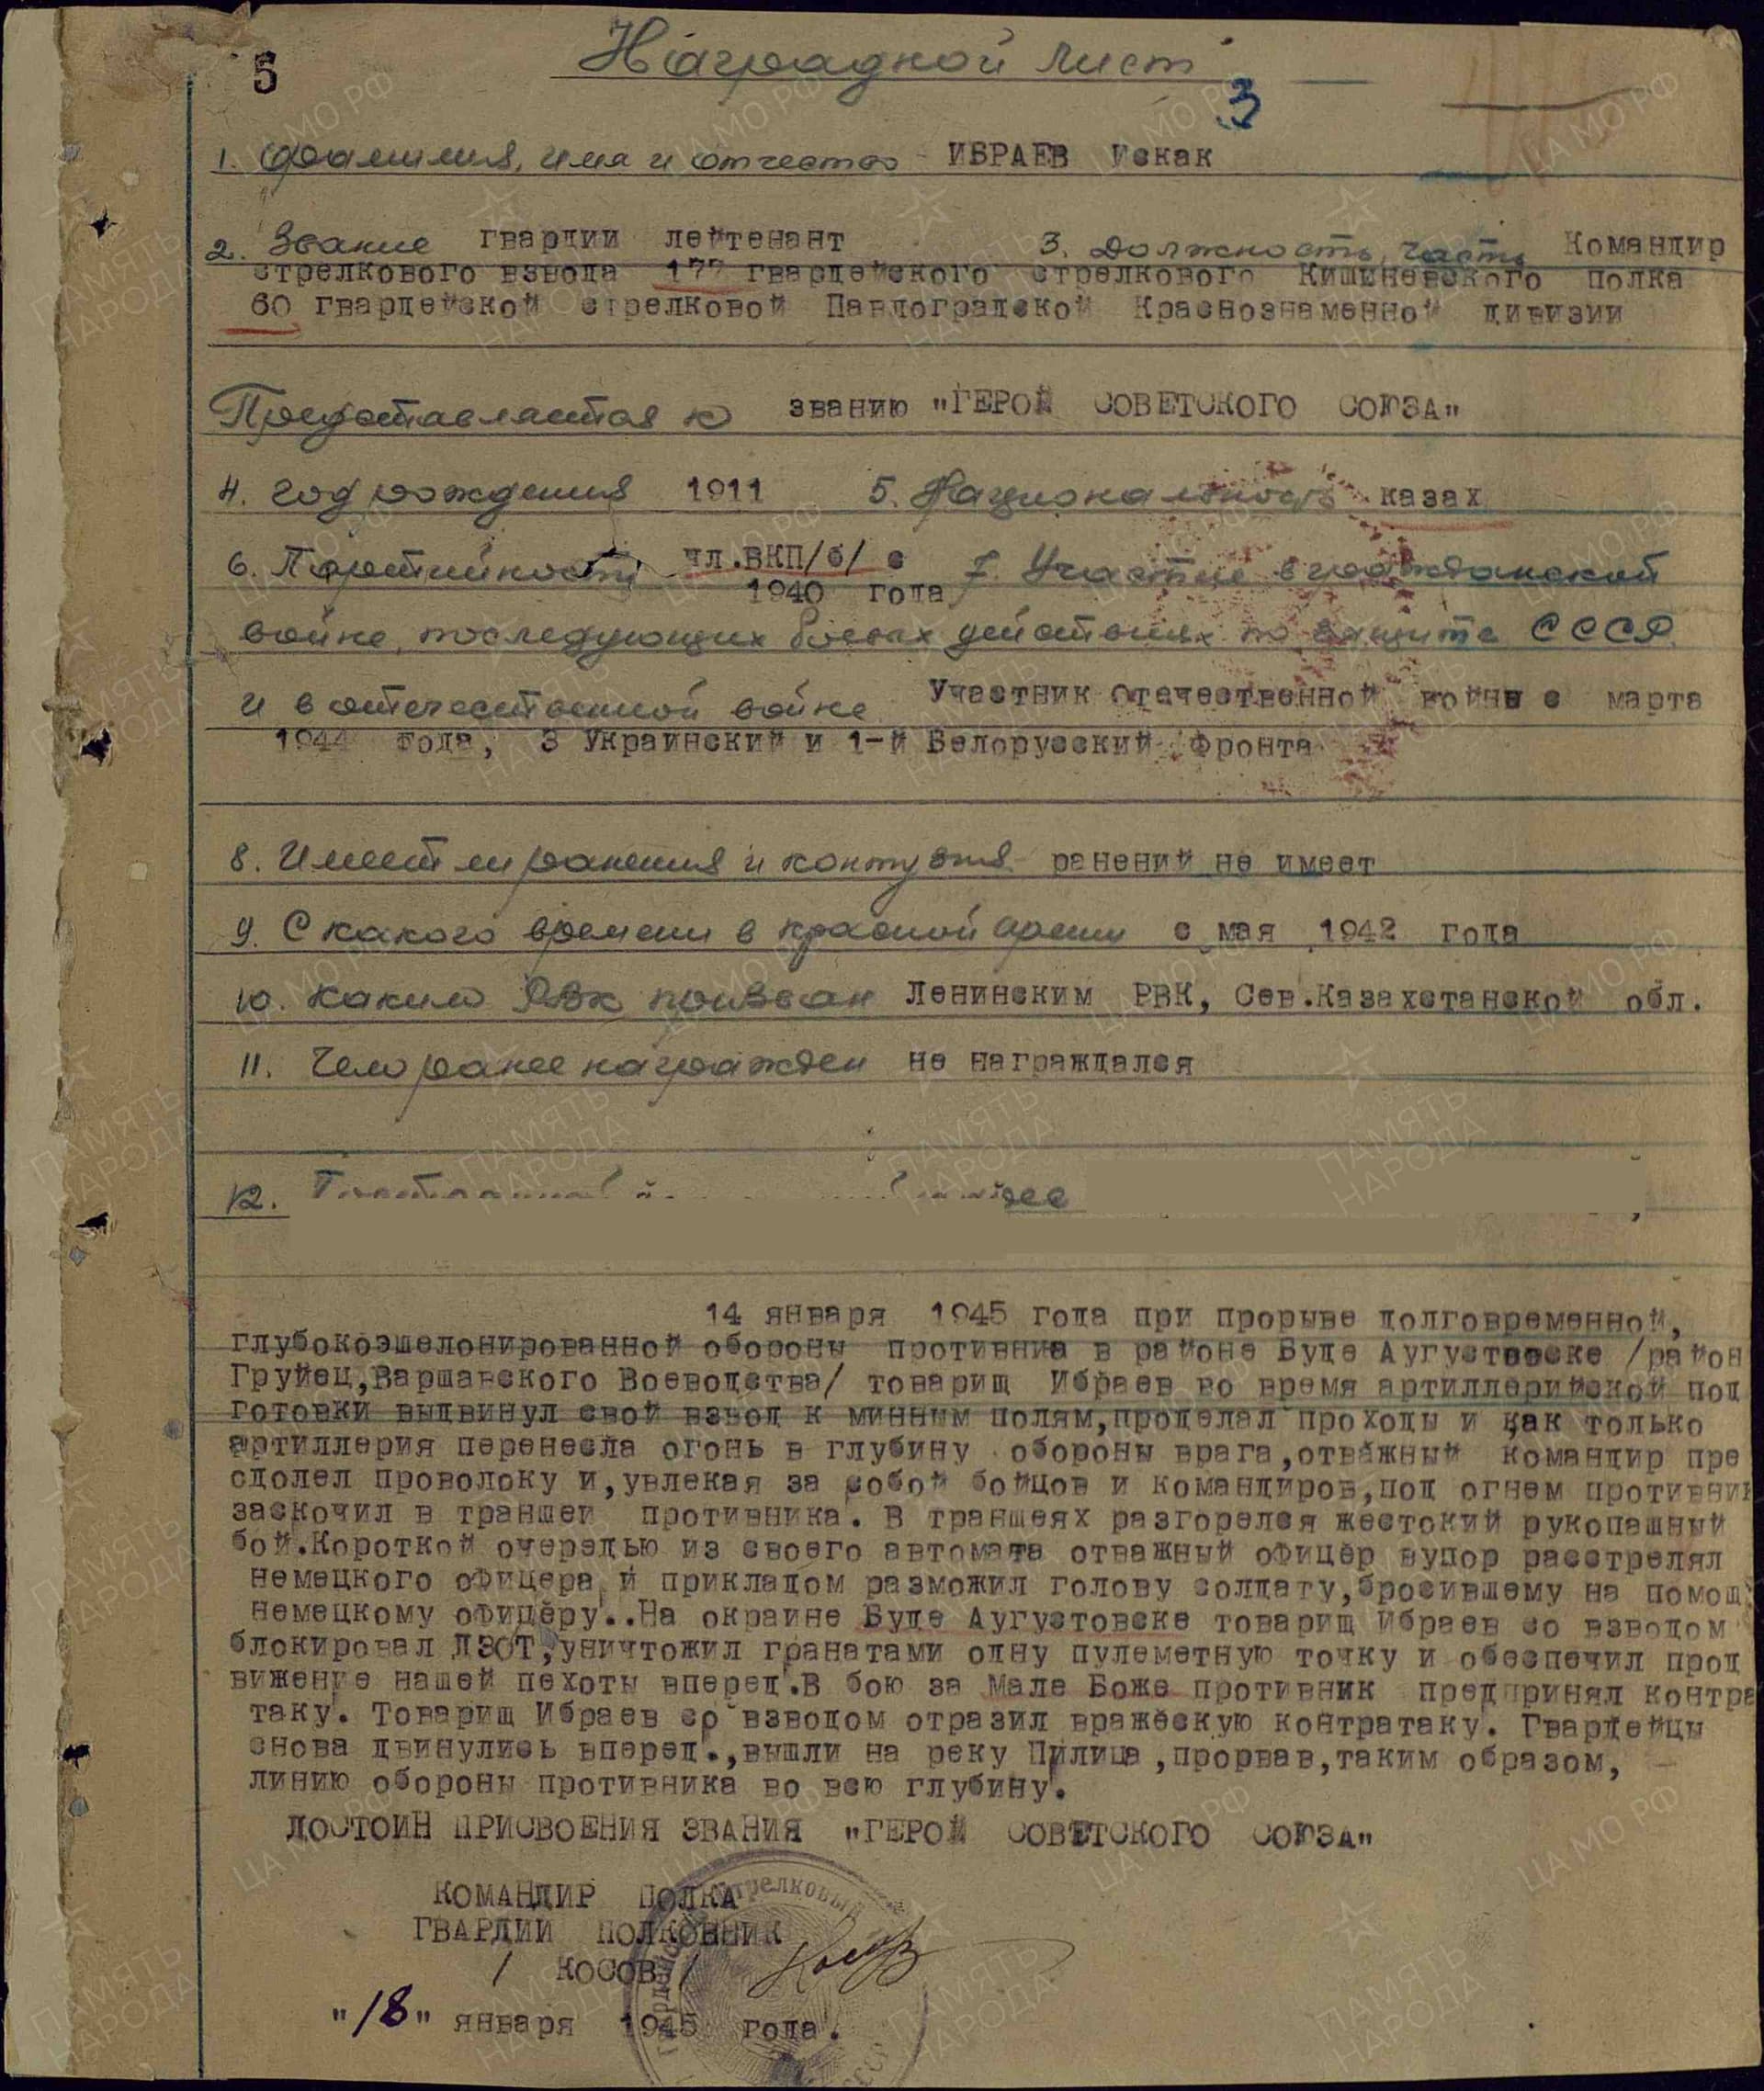 5
Наградной лист
3
1. Фамилия, имя и отчество - ИБРАЕВ Искак
2. Звание гвардии лейтенант 3. Должность, часть Командир
стрелкового взвода 177 гвардейского стрелкового Кишиневского полка
60 гвардейской стрелковой Павлоградской Краснознаменной дивизии
Представляется к званию "ГЕРОЙ СОВЕТСКОГО СОЮЗА"
4. Год рождения 1911 5. Национальность казах
6. Партийность чл.ВКП/б/ с
1940 года 7. Участие в гражданской
войне, последующих боевых действиях по защите СССР
и в отечественной войне Участник Отечественной войны с марта
1944 года, 3 Украинский и 1-й Белорусский фронта
8. Имеет ли ранения и контузия ранений не имеет
9. С какого времени в красной армии с мая 1942 года
10. Каким РВК призван Ленинским РВК, Сев.Казахстанской обл.
11. Чем ранее награжден не награждался
12.
14 января 1945 года при прорыве долговременной,
глубокоэшелонированной обороны противника в районе Буде Аугустовске /район
Груйец,Варшавского Воеводства/ товарищ Ибраев во время артиллерийской под
готовки выдвинул свой взвод к минным полям,проделал проходы и как только
артиллерия перенесла огонь в глубину обороны врага,отважный командир пре
одолел проволоку и,увлекая за собой бойцов и командиров,под огнем противник
заскочил в траншеи противника. В траншеях разгорелся жестокий рукопашный
бой.Короткой очередью из своего автомата отважный офицер вупор расстрелял
немецкого офицера и прикладом разможил голову солдату,бросившему на помощ
немецкому офицеру..На окраине Буде Аугустовске товарищ Ибраев со взводом
блокировал ДЗОТ,уничтожил гранатами одну пулеметную точку и обеспечил прод
вижение нашей пехоты вперед.В бою за Мале Боже противник предпринял контра
таку. Товарищ Ибраев со взводом отразил вражескую контратаку. Гвардейцы
снова двинулись вперед.,вышли на реку Пилица,прорвав,таким образом,
линию обороны противника во всю глубину.
ДОСТОИН ПРИСВОЕНИЯ ЗВАНИЯ "ГЕРОЙ СОВЕТСКОГО СОЮЗА"
КОМАНДИР ПОЛКА
ГВАРДИИ ПОЛКОВНИК
/ КОСОВ /
"18" января 1945 года.